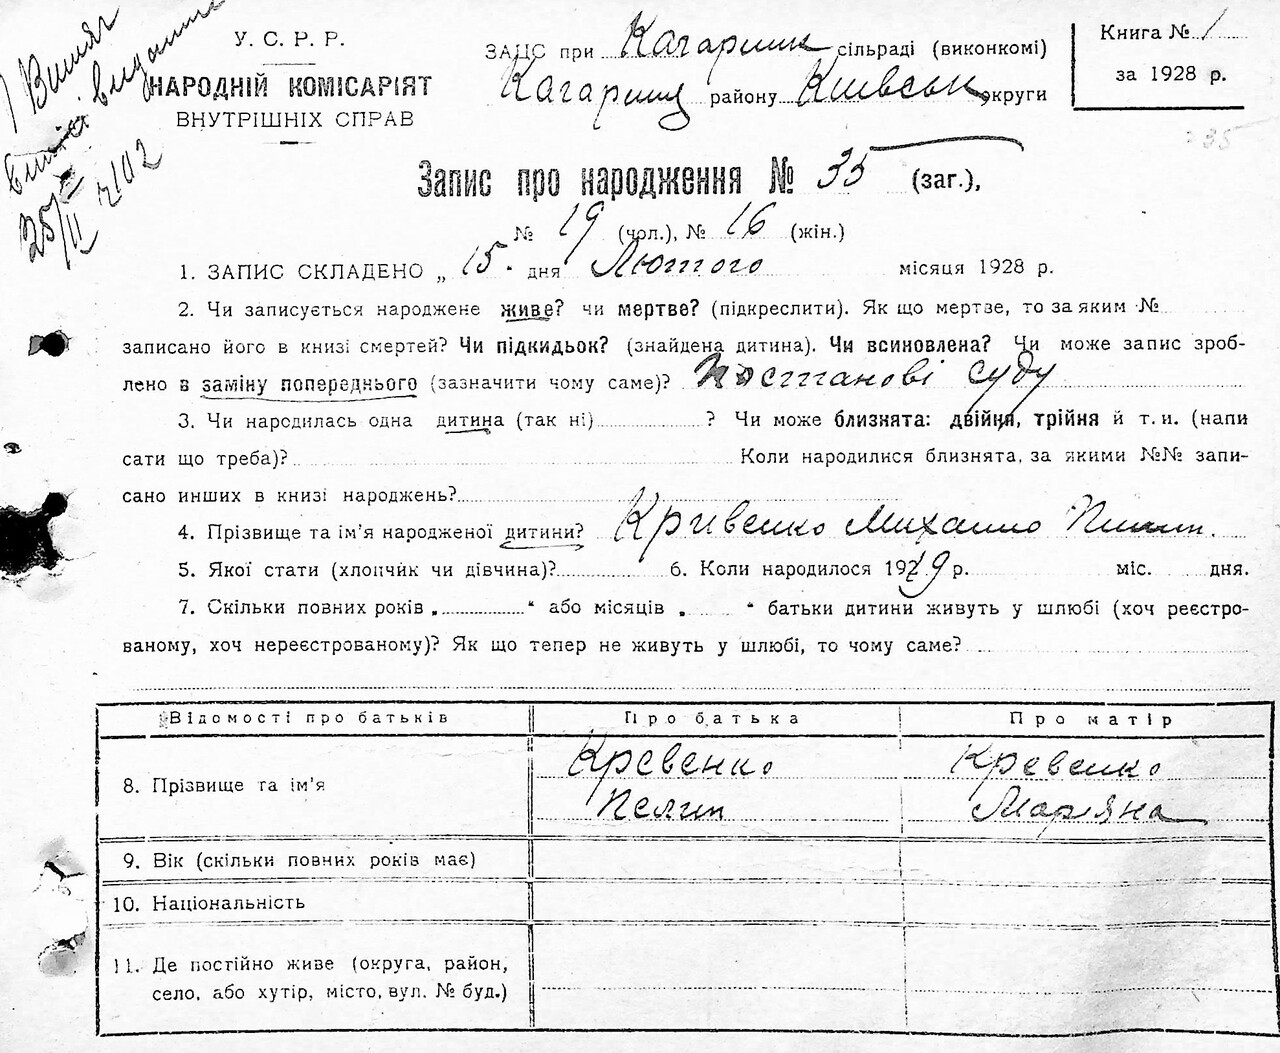 Витяг
видано
25/II №102
У. С. Р. Р.
НАРОДНІЙ КОМІСАРІЯТ
ВНУТРІШНІХ СПРАВ
ЗАЦС при Кагарлик сільраді (виконкомі)
Кагарлиц району Київськ округи
Книга № 1
за 1928 р.
235
Запис про народження № 35 (заг.),
№ 19 (чол.), № 16 (жін.)
1. ЗАПИС СКЛАДЕНО „ 15. дня Лютого місяця 1928 р.
2. Чи записується народжене живе? чи мертве? (підкреслити). Як що мертве, то за яким №
записано його в книзі смертей? Чи підкидьок? (знайдена дитина). Чи всиновлена? Чи може запис зроб-
лено в заміну попереднього (зазначити чому саме)? Постанові суду
3. Чи народилась одна дитина (так ні) ? Чи може близнята: двійня, трійня й т. и. (напи
сати що треба)? Коли народилися близнята, за якими №№ запи-
сано инших в книзі народжень?
4. Прізвище та ім'я народженої дитини? Кривенко Михайло Пилип.
5. Якої стати (хлопчик чи дівчина)? 6. Коли народилося 1919 р. міс. дня.
7. Скільки повних років „ “ або місяців „ “ батьки дитини живуть у шлюбі (хоч реєстро-
ваному, хоч нереєстрованому)? Як що тепер не живуть у шлюбі, то чому саме?
Відомості про батьків Про батька Про матір
8. Прізвище та ім'я Кревенко Пелип Кревенко Мар'яна
9. Вік (скільки повних років має)
10. Національність
11. Де постійно живе (округа, район,
село, або хутір, місто, вул. № буд.)